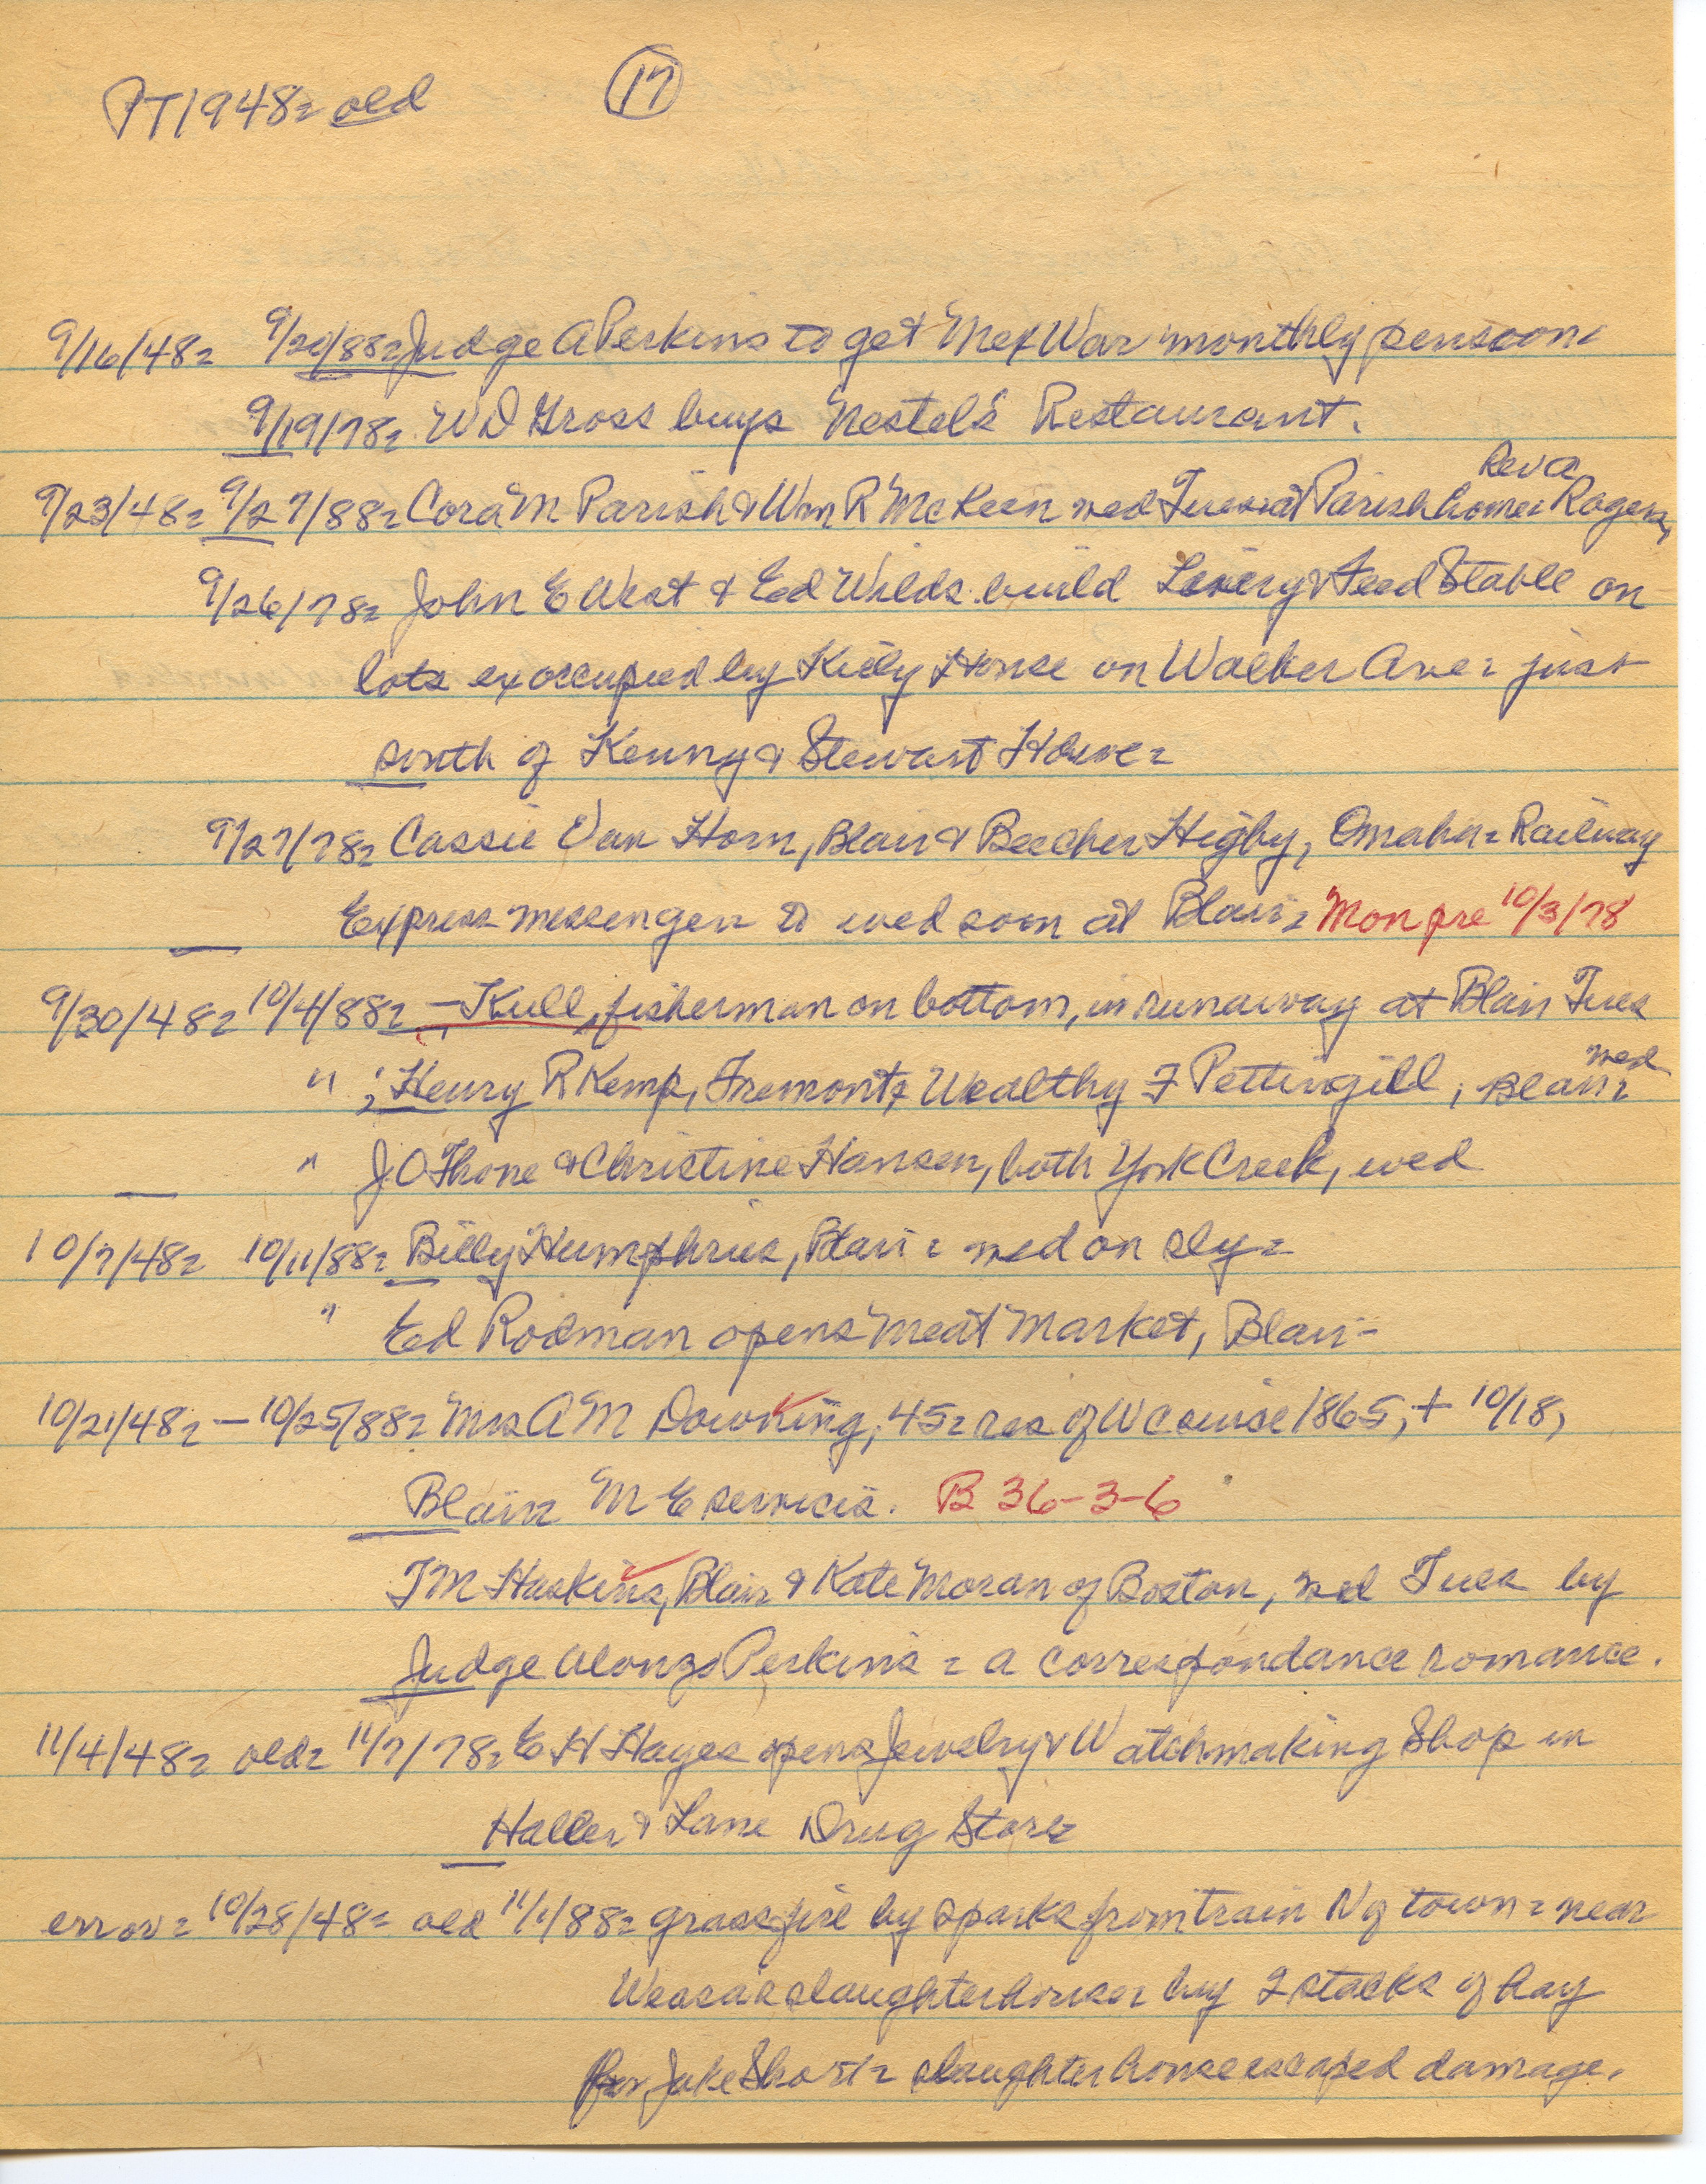 PT1948= old 17
9/16/48= 9/20/88= Judge A Perkins to get Mex War monthly pension=
9/19/78= W D Gross buys Nestel's Restaurant.
Rev A
9/23/48= 9/27/88= Cora M Parish & Wm R McKeen wed Tues at Parish home= Rogers,
9/26/78= John E West & Ed Wilds build Livery & Feed Stable on
lots ex occupied by Kiely House on Walker Ave= just
south of Kenny & Stewart House=
9/27/78= Cassie Van Horn, Blair & Beecher Higby, Omaha= Railway
Express messenger to wed soon at Blair= Mon pre 10/3/78
9/30/48= 10/4/88= — Kull, fisherman on bottom, in runaway at Blair Tues
wed
" ; Henry R Kemp, Fremont & Wealthy F Pettingill, Blair=
" J O Thone & Christine Hansen, both York Creek, wed
10/7/48= 10/11/88= Billy Humphries, Blair= wed on sly=
" Ed Rodman opens Meat Market, Blair-
10/21/48= — 10/25/88= Mrs A M Dowking, 45= res of W C since 1865, + 10/18,
Blair= M E services. B 36-3-6
T M Haskins, Blair & Kate Moran of Boston, wed Tues by
Judge Alonzo Perkins = a correspondance romance.
11/4/48= old= 11/7/78= E H Hayes opens Jewelry & Watchmaking Shop in
Haller & Lane Drug Store
error= 10/28/48= old 11/1/88= grass fire by sparks from train N of town= near
slaughterhouse= 2 stacks of hay
for Jake Short= slaughterhouse escaped damage.